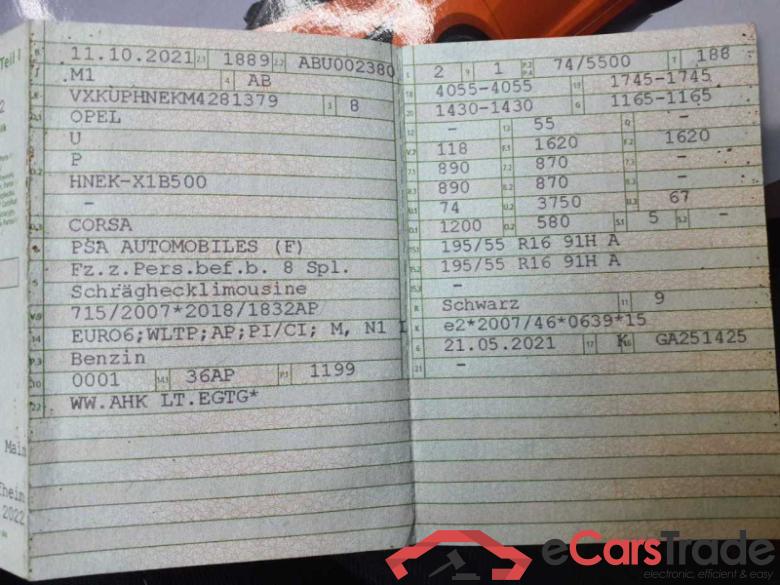 Teil I
B 11.10.2021 2.1 1889 2.2 ABU002380
J M1 4 AB
E VXKUPHNEKM4281379 3 8
D.1 OPEL
U
D.2 P
HNEK-X1B500
–
D.3 CORSA
PSA AUTOMOBILES (F)
5 Fz.z.Pers.bef.b. 8 Spl.
Schräghecklimousine
V.9 715/2007*2018/1832AP
14 EURO6;WLTP;AP;PI/CI; M, N1 I
P.3 Benzin
10 0001 14.1 36AP P.1 1199
22 WW.AHK LT.EGTG*
L 2 9 1 P.2 P.4 74/5500 T 188
18 4055-4055 19 1745-1745
20 1430-1430 G 1165-1165
12 – 13 55 Q –
V.7 118 F.1 1620 F.2 1620
7.1 890 7.2 870 7.3 –
8.1 890 8.2 870 8.3 –
U.1 74 U.2 3750 U.3 67
O.1 1200 O.2 580 S.1 5 S.2 –
15.1 195/55 R16 91H A
15.2 195/55 R16 91H A
15.3 –
R Schwarz 11 9
K e2*2007/46*0639*15
6 21.05.2021 17 K 16 GA251425
21 –
2
Main
heim
.2022
eCarsTrade
electronic, efficient & easy